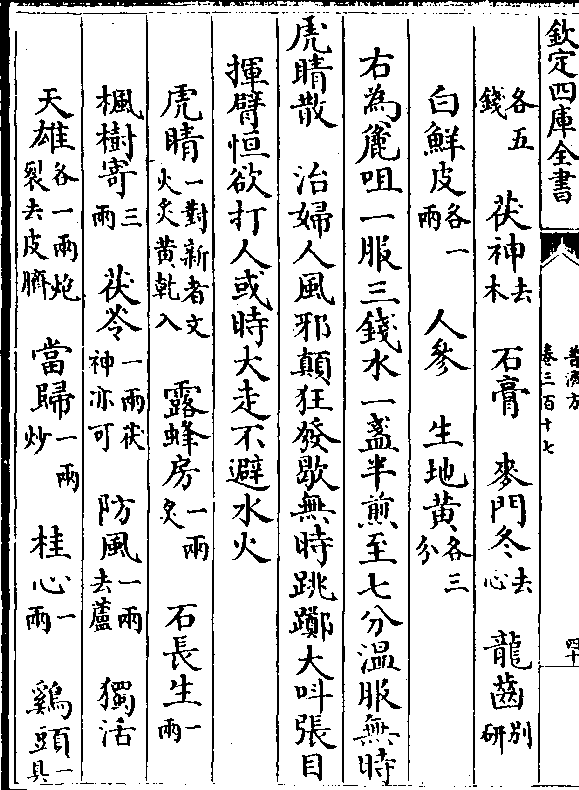 欽定四庫全書
普濟方
卷三百十七
四十
各五錢 茯神去木 石膏 麥門冬去心 龍齒別研
白鮮皮各一兩 人參 生地黄各三分
右為麄咀一服三錢水一盞半煎至七分温服無時
虎睛散 治婦人風邪顛狂發歇無時跳躑大呌張目
揮臂恒欲打人或時大走不避水火
虎睛一對新者文火炙黄乾入 露蜂房一兩炙 石長生一兩
楓樹寄三兩 茯苓一兩茯神亦可 防風一兩去蘆 獨活
天雄各一兩炮裂去皮臍 當歸一兩炒 桂心一兩 鷄頭一具